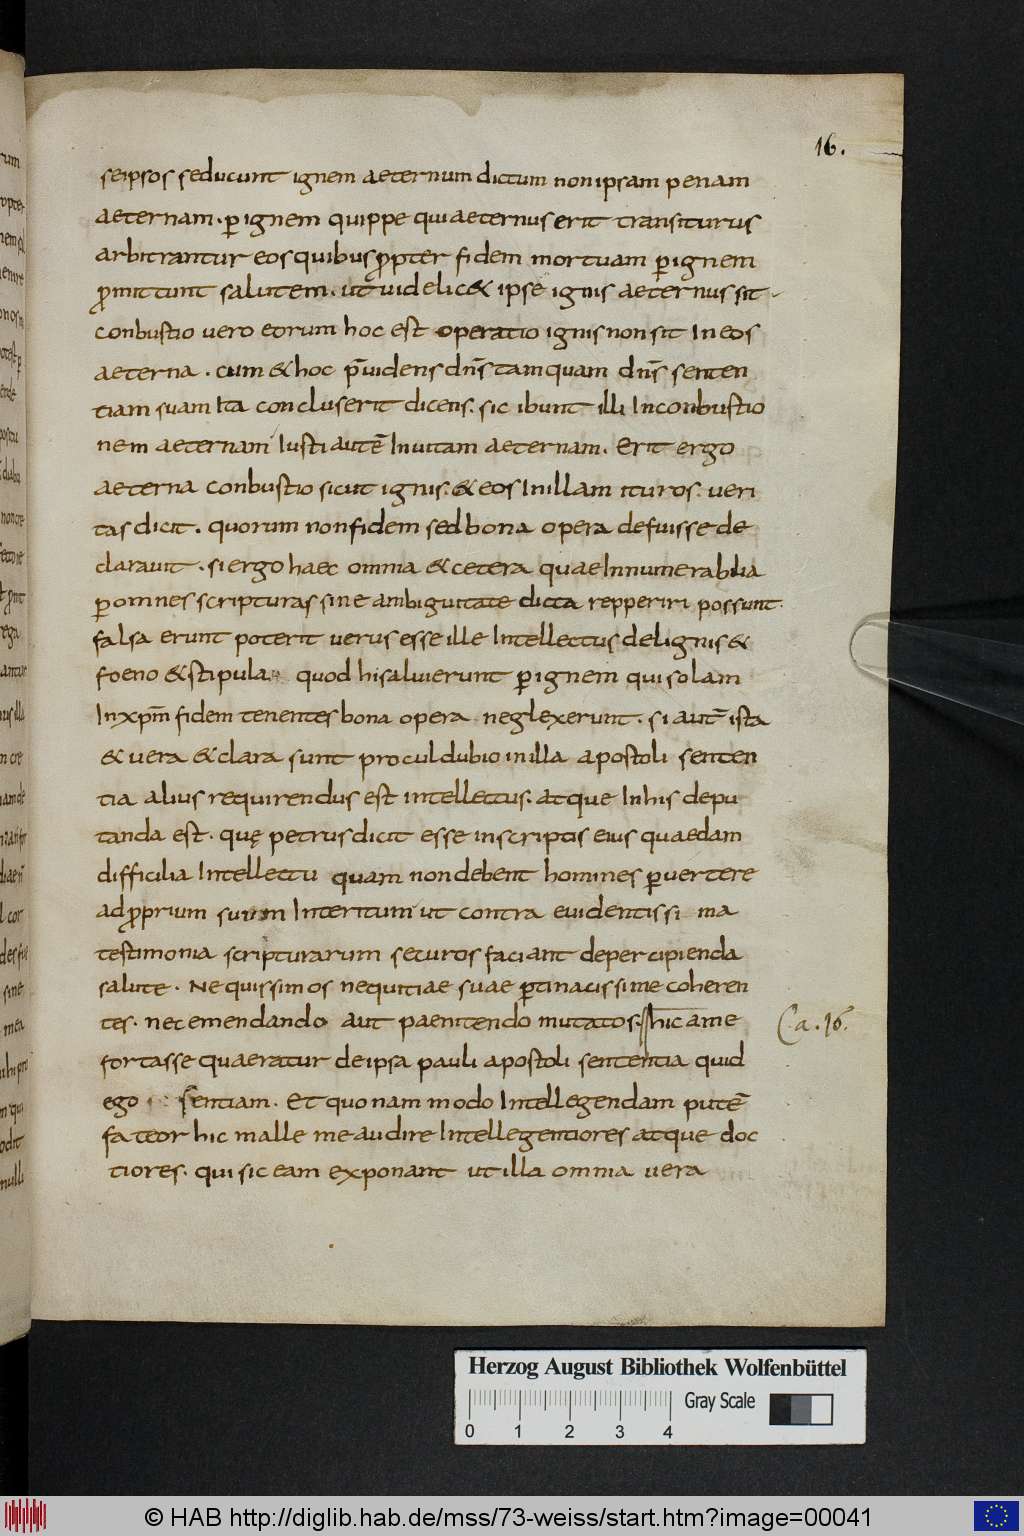 16.
seipsos seducunt ignem aeternum dictum non ipsam penam
aeternam. ꝑ ignem quippe qui aeternus erit transiturus
arbitrantur eos quibus ꝓpter fidem mortuam ꝑ ignem
ꝓmittunt salutem. ut videlic& ipse ignis aeternus sit
conbustio vero eorum hoc est operatio ignis non sit In eos
aeterna. cum & hoc p̄videns dn̄s tamquam dn̄s senten
tiam suam Ita concluserit dicens. sic ibunt illi In conbustio
nem aeternam Iusti autē In vitam aeternam. Erit ergo
aeterna conbustio sicut ignis. & eos In illam ituros. veri
tas dicit. quorum non fidem sed bona opera defuisse de
claravit. si ergo haec omnia & cetera quae Innumerabilia
ꝑ omnes scripturas sine ambiguitate dicta repperiri possunt.
falsa erunt poterit verus esse ille Intellectus de lignis &
foeno & stipula. quod hi salvi erunt ꝑ ignem qui solam
In xp̄m fidem tenentes bona opera neglexerunt. si aut̄ ista
& vera & clara sunt procul dubio in illa apostoli senten
tia alius requirendus est intellectus. atque In his depu
tanda est. quę petrus dicit esse in scriptis eius quaedam
difficilia Intellectu quam non debent homines ꝑvertere
ad ꝓprium suum Interitum ut contra evidentissi ma
testimonia scripturarum securos faciant de percipienda
salute. Nequissimos nequitiae suae ꝑtinacissime coheren
tes. nec emendando aut paenitendo mutatos. hic a me
Ca. 16.
fortasse quaeratur de ipsa pauli apostoli sententia quid
ego sentiam. Et quonam modo Intellegendam putē
fateor hic malle me audire Intellegentiores atque doc
tiores. qui sic eam exponant ut illa omnia vera
Herzog August Bibliothek Wolfenbüttel
Gray Scale
0 1 2 3 4
© HAB http://diglib.hab.de/mss/73-weiss/start.htm?image=00041